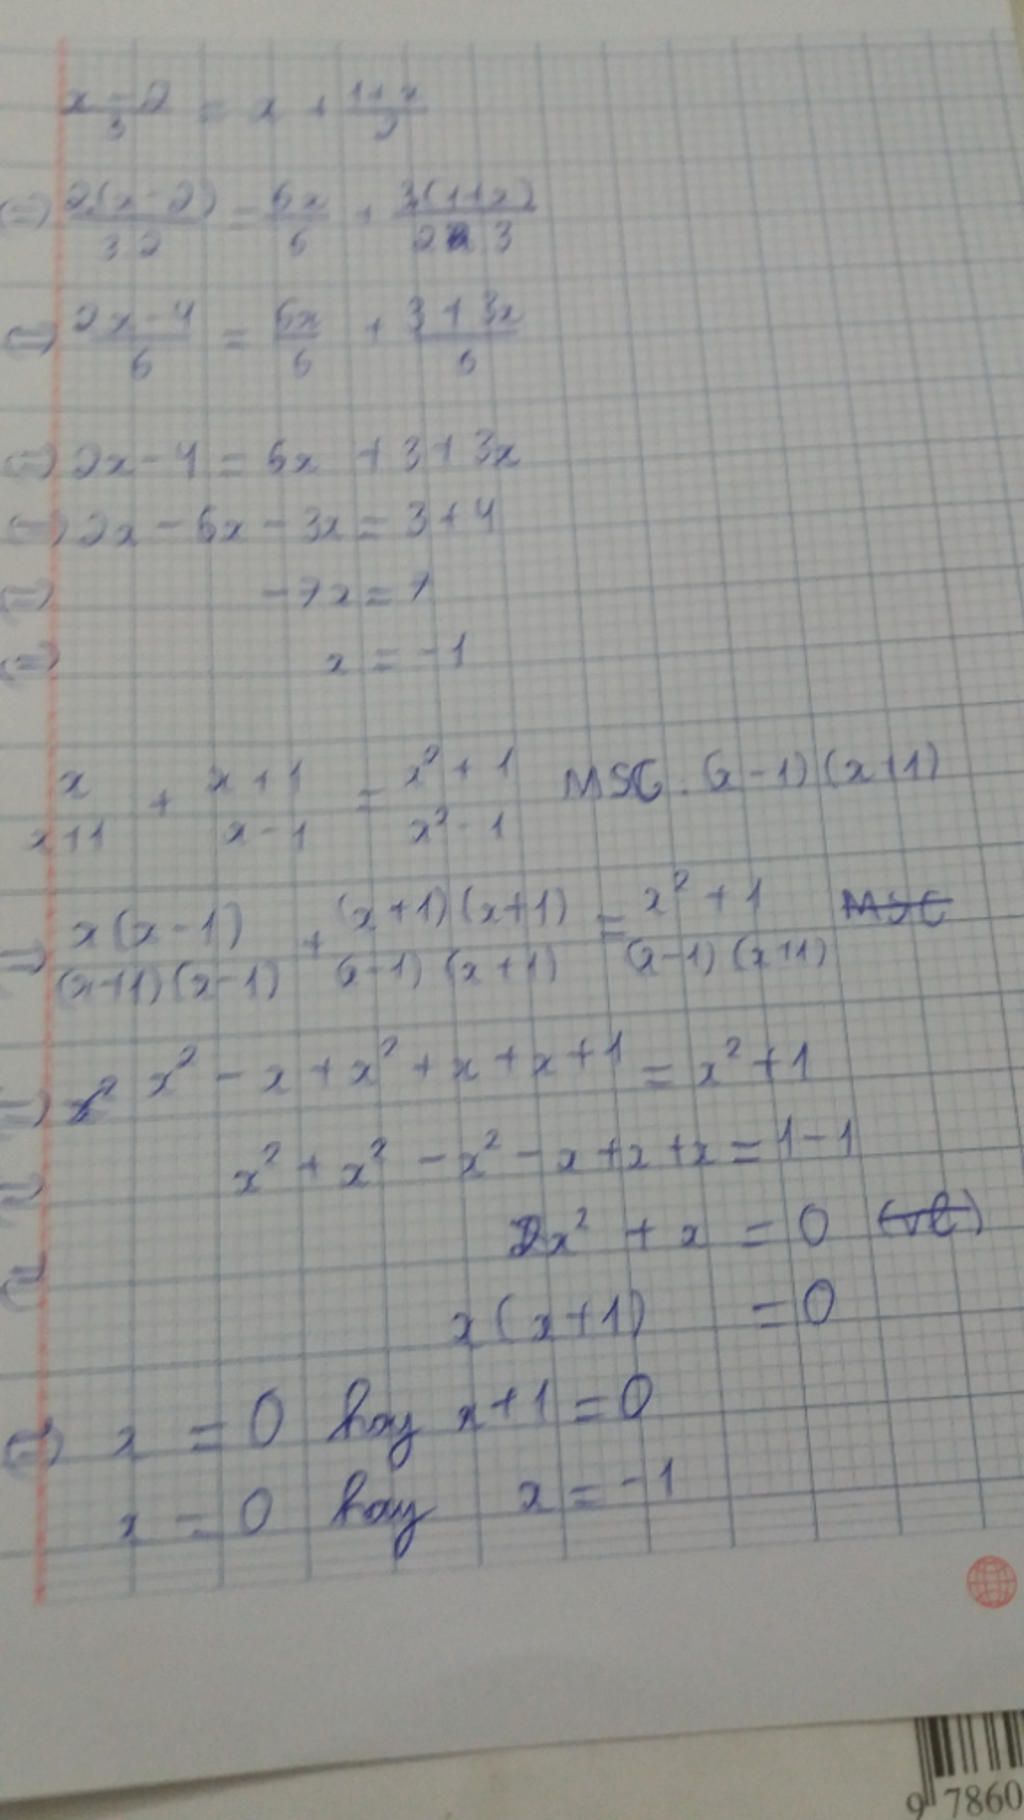 x - 2 / 3 = x + 1+x / 2
⇔ 2(x - 2) / 3 2 = 6x / 6 + 3(1+x) / 2 3
⇔ 2x - 4 / 6 = 6x / 6 + 3 + 3x / 6
⇔ 2x - 4 = 6x + 3 + 3x
⇔ 2x - 6x - 3x = 3 + 4
⇔ -7x = 7
⇔ x = -1
x / x+1 + x+1 / x-1 = x² + 1 / x² - 1 MSC: (x-1)(x+1)
⇔ x(x-1) / (x+1)(x-1) + (x+1)(x+1) / (x-1)(x+1) = x² + 1 / (x-1)(x+1) MSC
⇔ x² x² - x + x² + x + x + 1 = x² + 1
⇔ x² + x² - x² - x + x + x = 1 - 1
⇔ 2x² + x = 0 (vl)
x(x+1) = 0
⇔ x = 0 hay x+1 = 0
x = 0 hay x = -1
9 7860